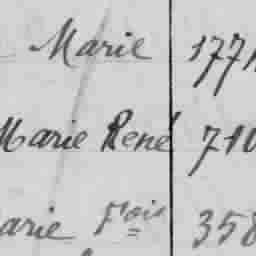 Marie 1771
Marie René 710
arie Fois 358